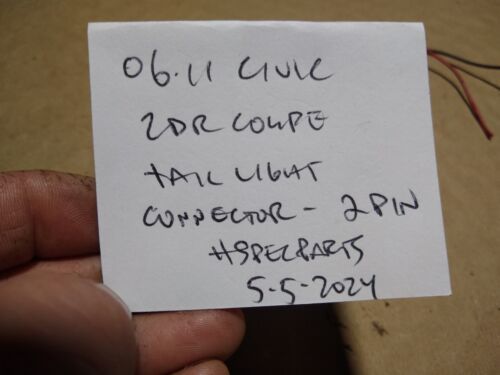 06.11 CIVIC
2DR COUPE
TAIL LIGHT
CONNECTOR - 2 PIN
HSPECPARTS
5-5-2024